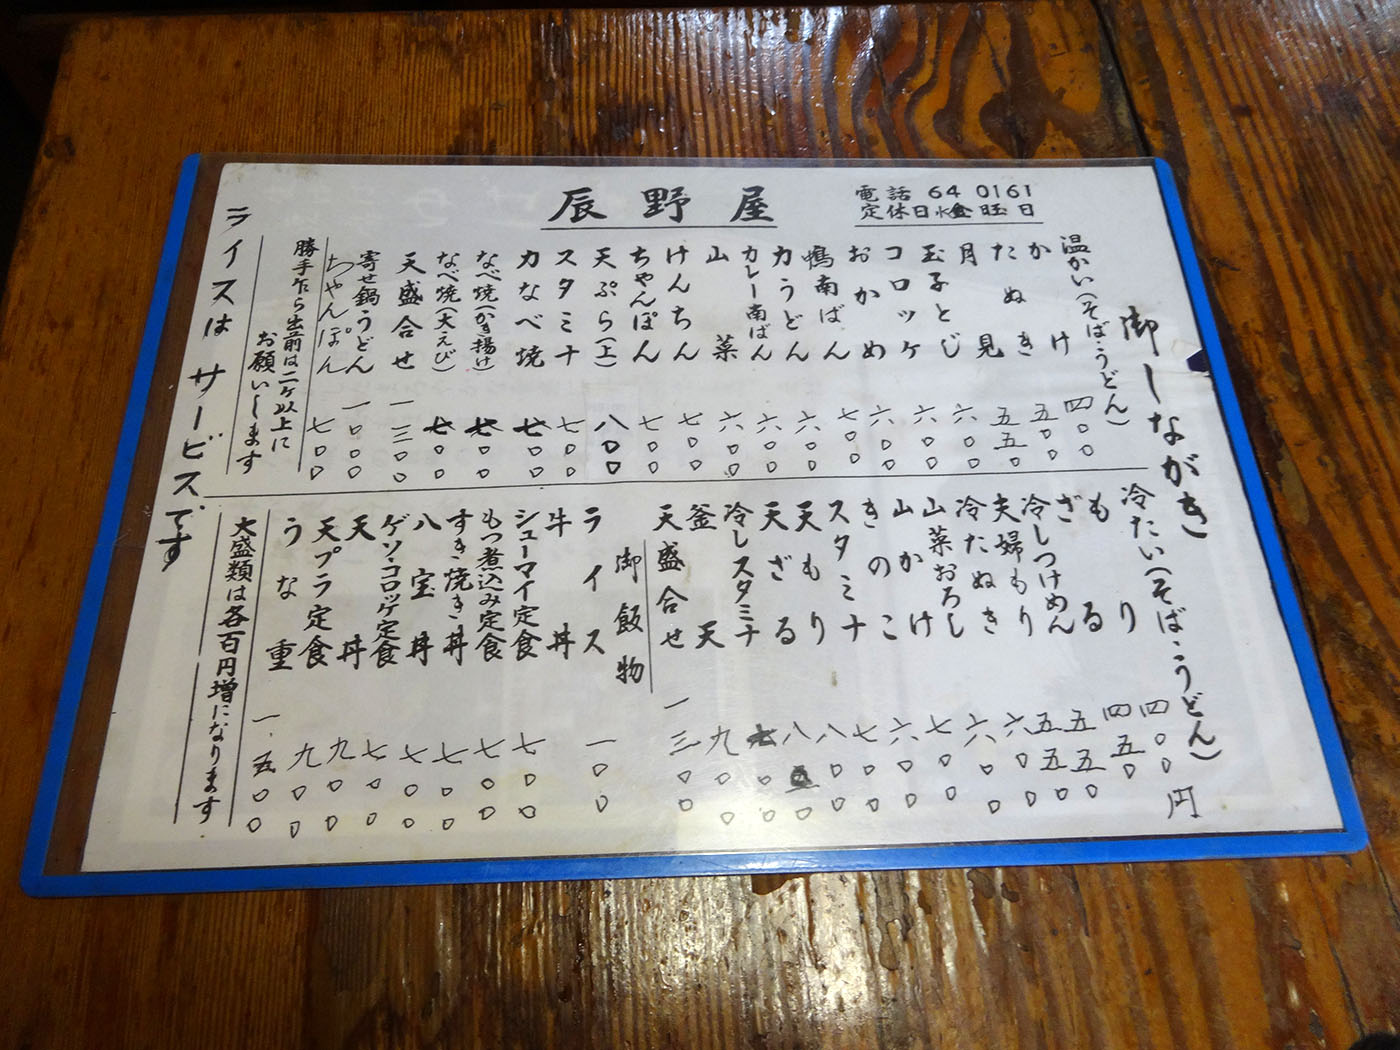 辰野屋
電話 64 0161
定休日 金曜日
御しながき
温かい(そば・うどん)
かけ 四〇〇
たぬき 五〇〇
月見 五五〇
玉子とじ 六〇〇
コロッケ 六〇〇
おかめ 六〇〇
鴨南ばん 七〇〇
力うどん 六〇〇
カレー南ばん 六〇〇
山菜 六〇〇
けんちん 七〇〇
ちゃんぽん 七〇〇
天ぷら(上) 八〇〇
スタミナ 七〇〇
力なべ焼 七〇〇
なべ焼(かき揚げ) 七〇〇
なべ焼(大えび) 七〇〇
天盛合せ 一三〇〇
寄せ鍋うどん 一〇〇〇
ちゃんぽん 七〇〇
勝手乍ら出前は二ケ以上に
お願いします
冷たい(そば・うどん)
もり 四〇〇円
ざる 四五〇
冷しつけめん 五五〇
夫婦もり 五五〇
冷たぬき 六〇〇
山菜おろし 六〇〇
山かけ 七〇〇
きのこ 六〇〇
スタミナ 七〇〇
天もり 八〇〇
天ざる 八五〇
冷しスタミナ 七〇〇
釜天 九〇〇
天盛合せ 一三〇〇
御飯物
ライス 一〇〇
牛丼
シューマイ定食 七〇〇
もつ煮込み定食 七〇〇
すき焼き丼 七〇〇
八宝丼 七〇〇
ゲソ・コロッケ定食 七〇〇
天丼 九〇〇
天プラ定食 九〇〇
うな重 一.五〇〇
大盛類は各百円増になります
ライスは サービスです